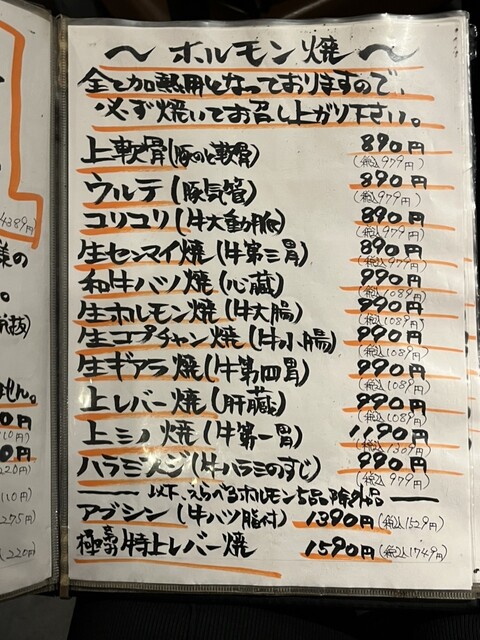 〜ホルモン焼〜
全て加熱用となっておりますので、
必ず焼いてお召し上がり下さい。
上軟骨(豚のど軟骨) 890円
(税込979円)
ウルテ(豚気管) 890円
(税込979円)
コリコリ(牛大動脈) 890円
(税込979円)
生センマイ焼(牛第三胃) 890円
(税込979円)
和牛ハツ焼(心臓) 990円
(税込1089円)
生ホルモン焼(牛大腸) 990円
(税込1089円)
生コプチャン焼(牛小腸) 990円
(税込1089円)
生ギアラ焼(牛第四胃) 990円
(税込1089円)
上レバー焼(肝臓) 990円
(税込1089円)
上ミノ焼(牛第一胃) 1,190円
(税込1309円)
ハラミスジ(牛ハラミのすじ) 990円
(税込979円)
以下、えらべるホルモン5品除外品
アブシン(牛ハツ脂付) 1390円(税込1529円)
極 特上レバー焼 1590円(税込1749円)
4389円)
様の
。
ません。
0円
110円)
0円
220円)
110円)
275円)
220円)